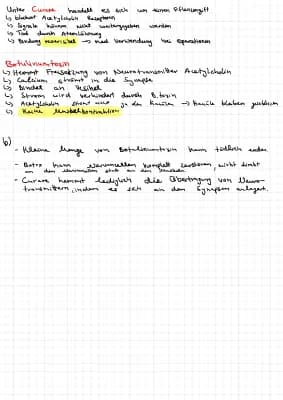 Unter Curare handelt es sich um einen Pflanzengift
↳ blockiert Acetylcholin Rezeptoren
↳ Signale können nicht weitergegeben werden
↳ Tod durch Atemlähmung
↳ Bindung reversibel → med Verwendung bei Operationen
Botulinumtoxin
↳ Hemmt Freisetzung von Neurotransmitter Acetylcholin
↳ Calcium strömt in die Synapse
↳ Bindet an Vesikel
↳ Strom wird verhindert durch B. toxin
↳ Acetylcholin strömt in den Kanälen → Kanäle bleiben geschlossen
↳ Keine Muskelkontraktion
b)
- Kleine Menge von Botulinumtoxin kann tödlich enden
- Botox kann Nervenzellen komplett zerstören, wirkt direkt an den statt an den
- Curare hemmt lediglich die Übertragung von Neurotransmittern, indem es sich an den Synapsen anlagert.